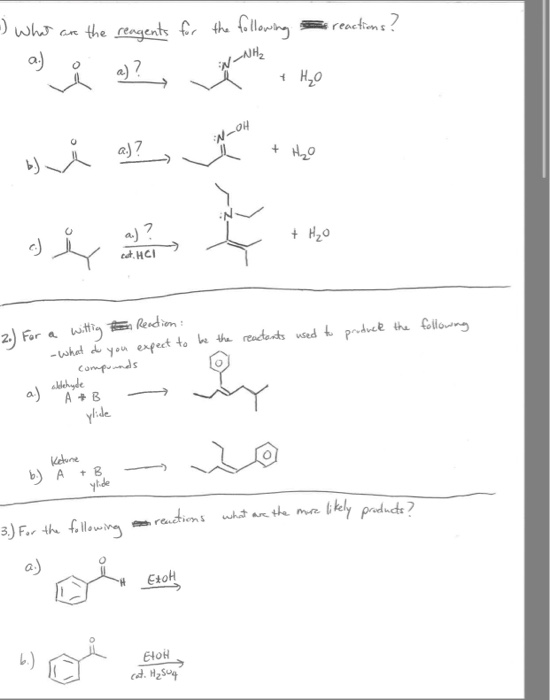 1) What are the reagents for the following reactions?
a.) O a) ? :N-NH2 + H2O
b.) O a.) ? :N-OH + H2O
c.) O a.) ? cat. HCl :N + H2O
2.) For a Wittig Reaction:
-what do you expect to be the reactants used to produce the following
compounds
a) aldehyde
A + B
ylide
b.) Ketone
A + B
ylide
3.) For the following reactions what are the more likely products?
a.) O H EtOH
b.) O EtOH
cat. H2SO4